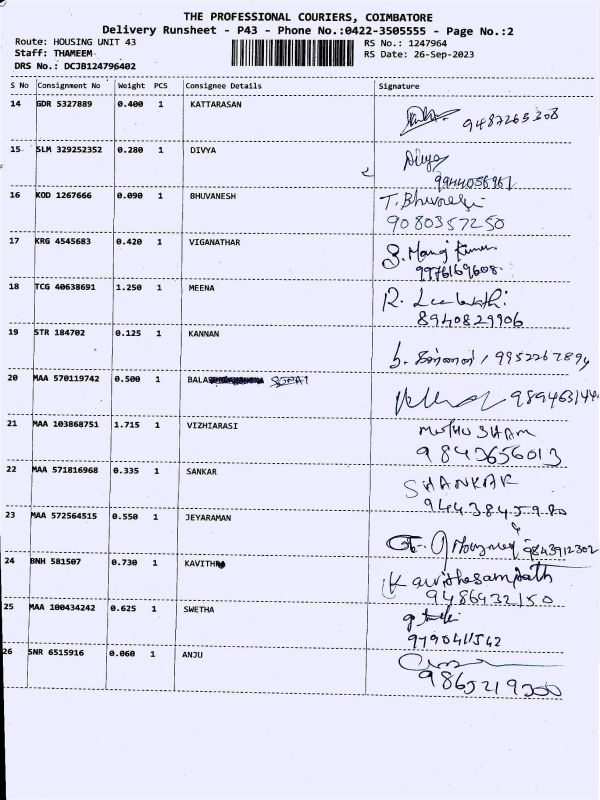 THE PROFESSIONAL COURIERS, COIMBATORE
Delivery Runsheet - P43 - Phone No.:0422-3505555 - Page No.:2
Route: HOUSING UNIT 43 RS No.: 1247964
Staff: THAMEEM RS Date: 26-Sep-2023
DRS No.: DCJB124796402
S No Consignment No Weight PCS Consignee Details Signature
14 GDR 5327889 0.400 1 KATTARASAN
9487265308
15 SLM 329252352 0.280 1 DIVYA Divya
9944056961
16 KOD 1267666 0.090 1 BHUVANESH T. Bhuvanesh
9080357250
17 KRG 4545683 0.420 1 VIGANATHAR S. Manoj Kumar
9976169608
18 TCG 40638691 1.250 1 MEENA R.
8940829906
19 STR 184702 0.125 1 KANNAN
9952267894
20 MAA 570119742 0.500 1 BALA
21 MAA 103868751 1.715 1 VIZHIARASI MUTHU SHAM
9843656013
22 MAA 571816968 0.335 1 SANKAR SHANKAR
9443845980
23 MAA 572564515 0.550 1 JEYARAMAN
9843912302
24 BNH 581507 0.730 1 KAVITH Kavithasampath
9486932150
25 MAA 100434242 0.625 1 SWETHA
9790411542
26 SNR 6515916 0.060 1 ANJU
9865219300